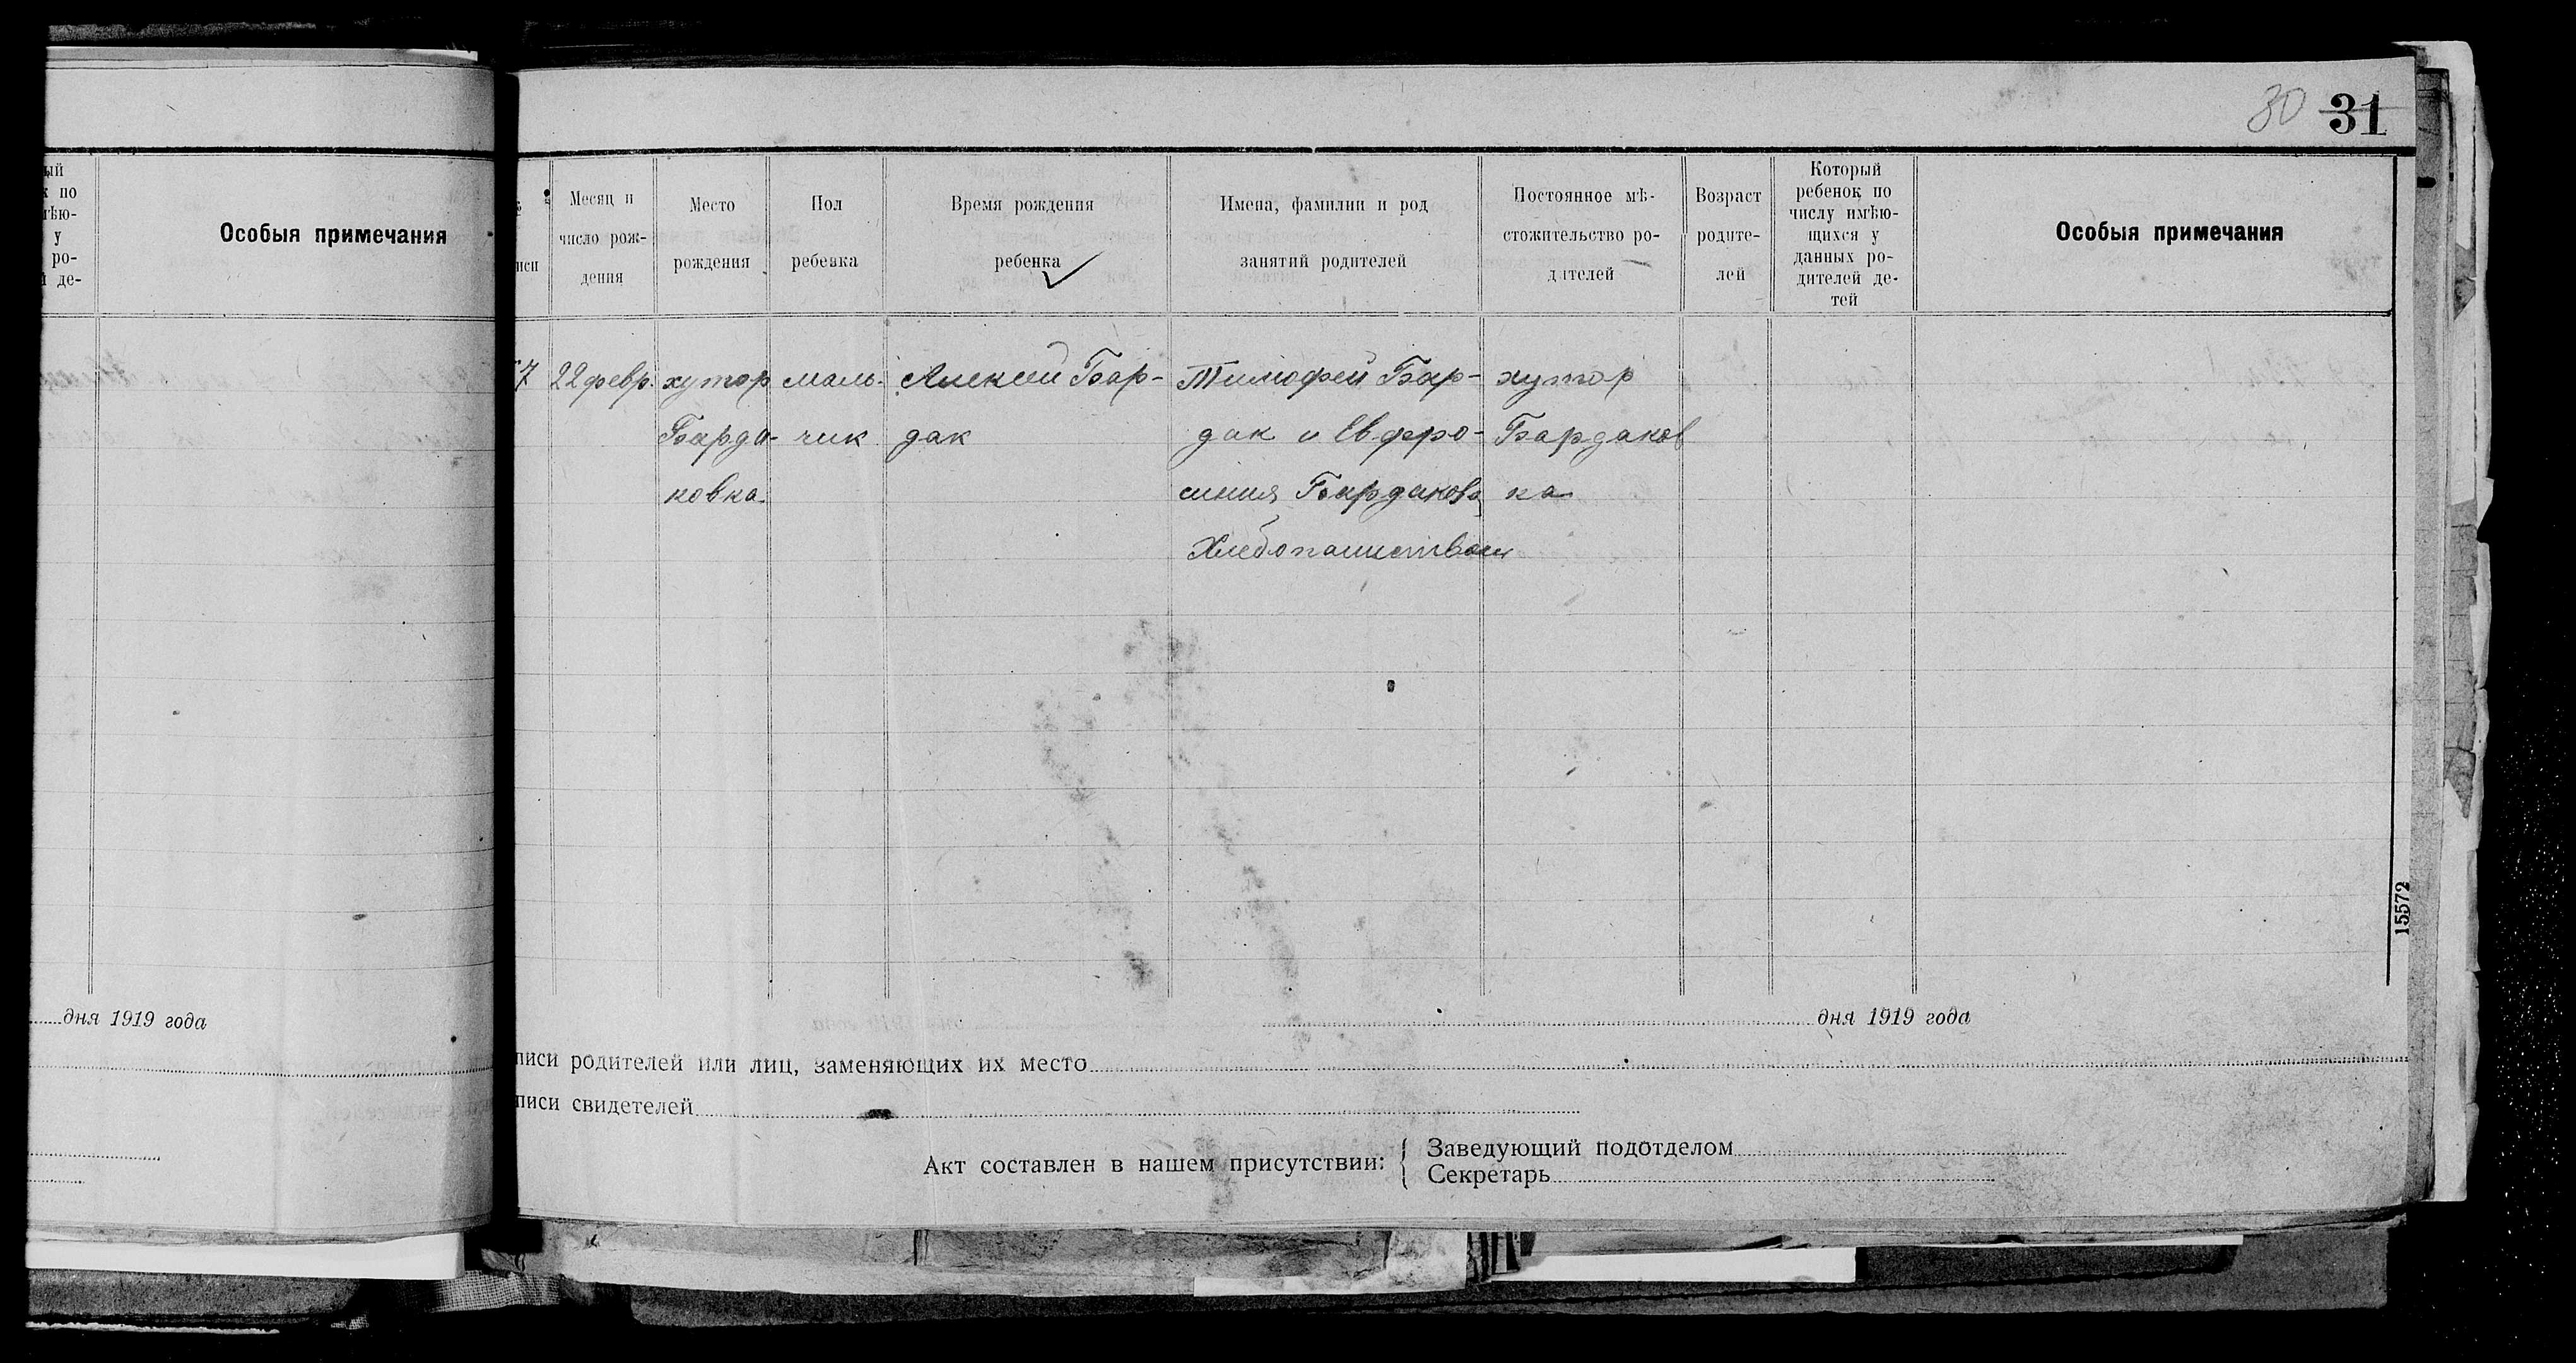 30 31
ый
к по
мѣю-
у
ро-
й де-
Особыя примечания
дня 1919 года
Месяц и
число рож-
дения
Место
рождения
Пол
ребенка
Время рождения
ребенка
Имена, фамилии и род
занятий родителей
Постоянное мѣ-
стожительство ро-
дителей
Возраст
родите-
лей
Который
ребенок по
числу имѣю-
щихся у
данных ро-
дителей де-
тей
Особыя примечания
7 22 февр. хутор маль- Алексей Бар- Тимофей Бар- хутор
Барда- чик дак дак и Евфро- Бардаков
ковка. синия Бардакова ка
Хлебопашеством
15572
дня 1919 года
писи родителей или лиц, заменяющих их место
писи свидетелей
Акт составлен в нашем присутствии:
Заведующий подотделом
Секретарь